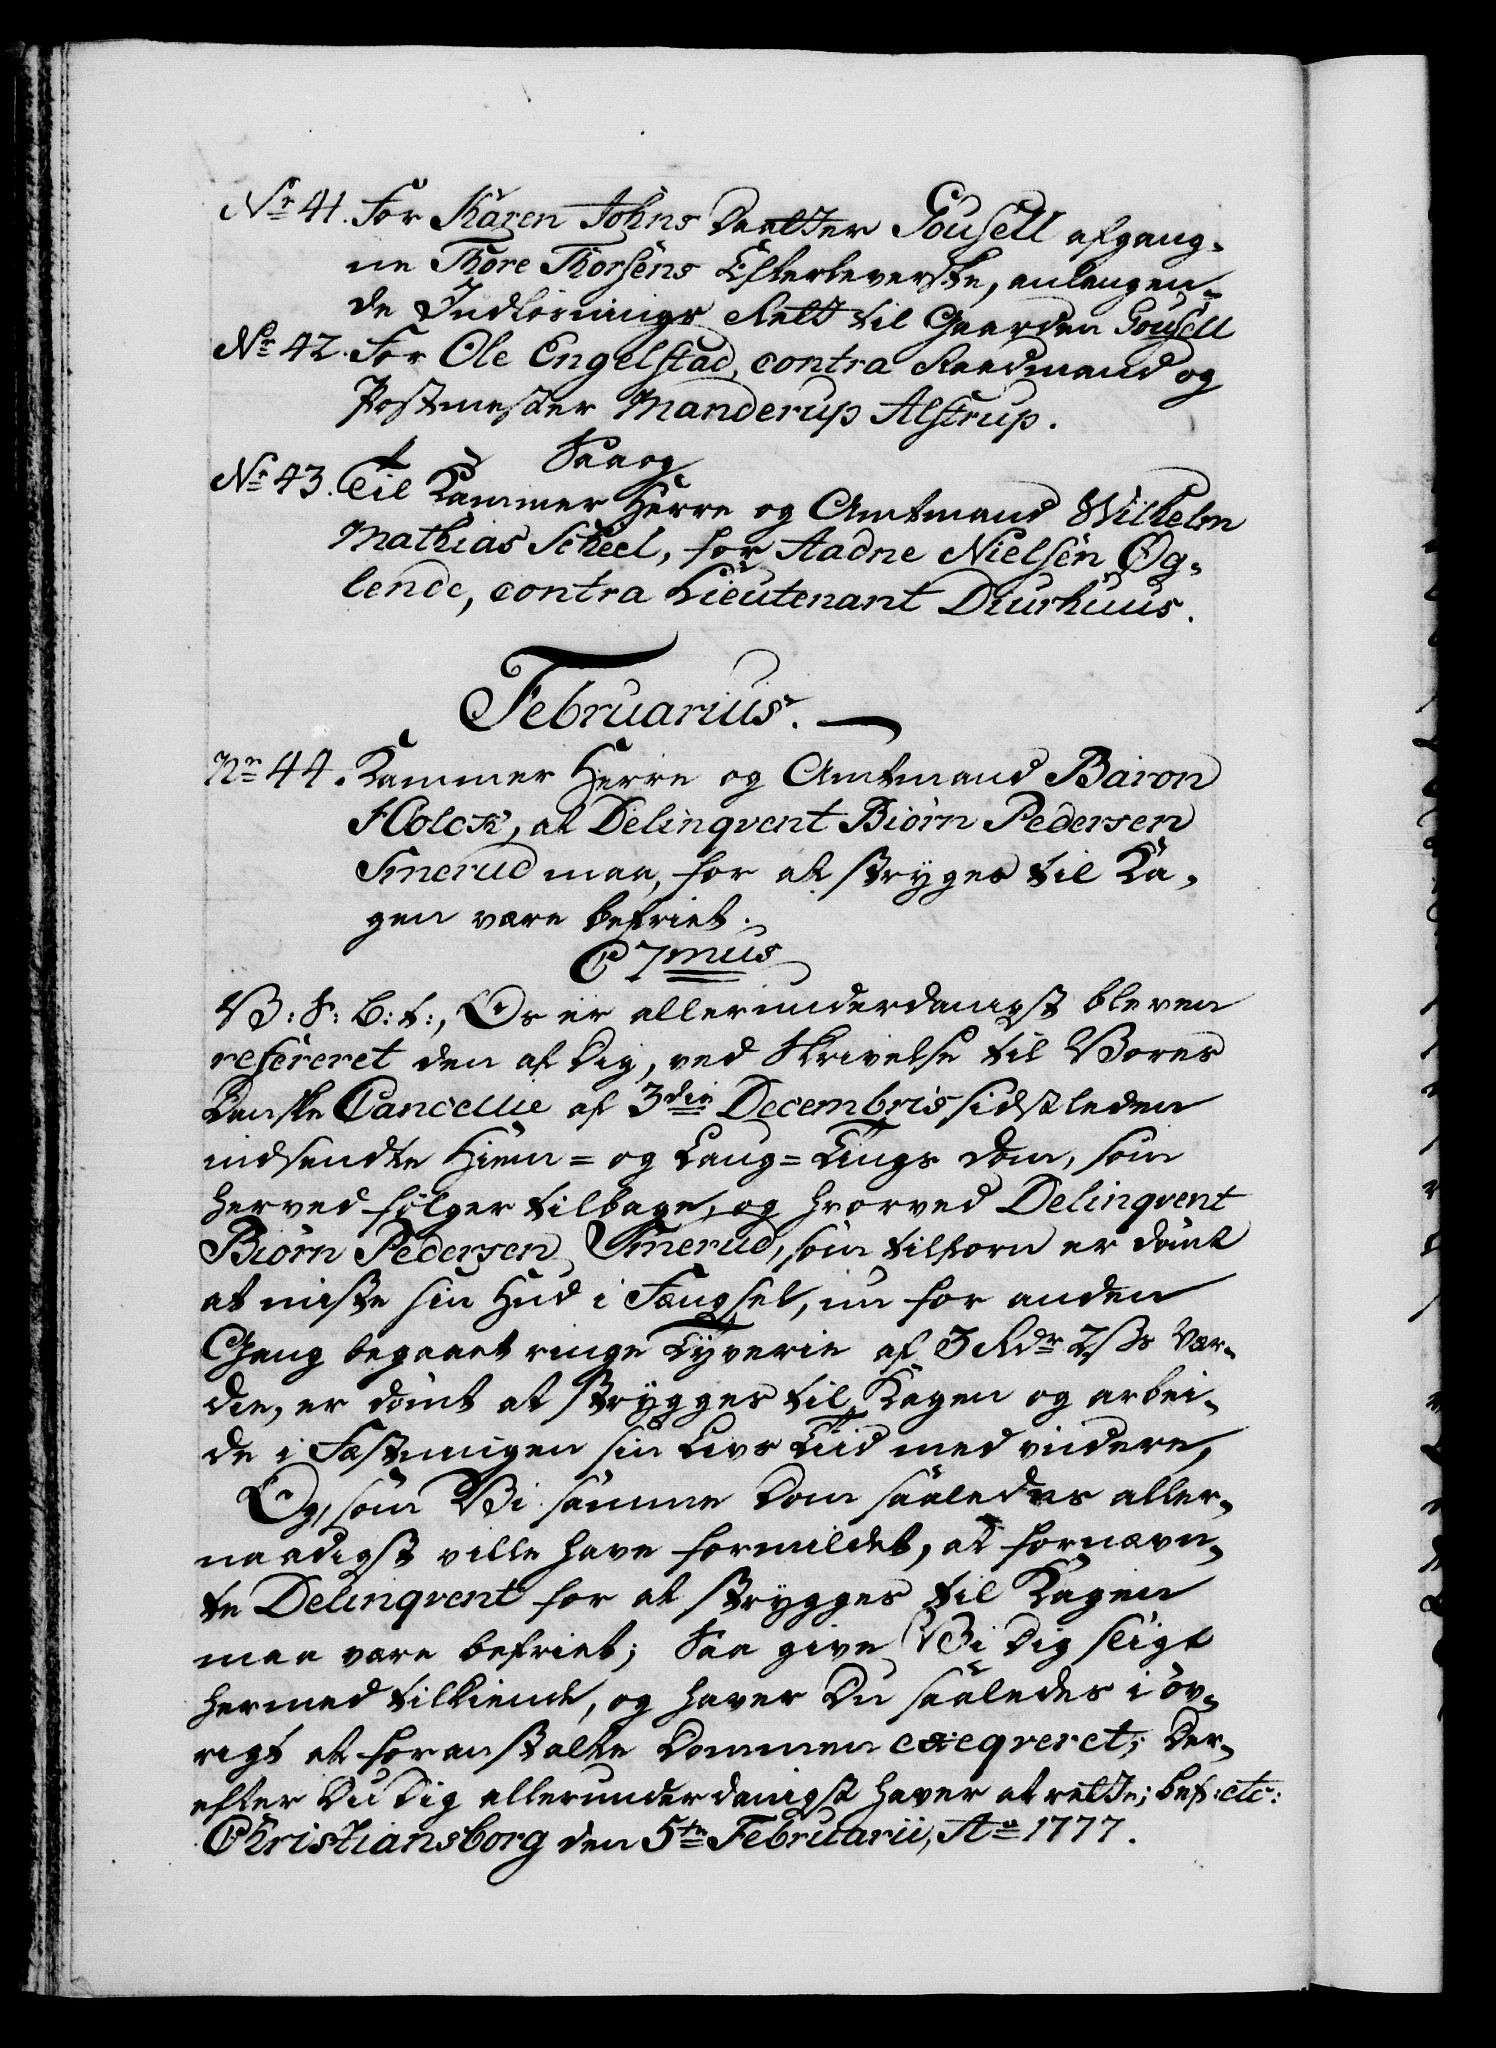 Nr 41. For Karen Johns Daatter Gousell afgang-
ne Thore Thorsens Efterleverske, anlangen-
de Indløsnings Rett til Gaarden Gousell
Nr 42. For Ole Engelstad, contra Raadmand og
Postmester Manderup Alstrup.
Saaog
Nr 43. Til Kammer Herre og Amtmand Wilhelm
Mathias Scheel, for Aadne Nielsen Øg-
lende, contra Lieutenant Diurhuus.
Februarius.
Nr 44. Kammer Herre og Amtmand Baron
Holck, at Delinqvent Biørn Pedersen
Smerud maa, for at stryges til Ka-
gen være befriet.
C 7mus
V: S: B: t:, Os er allerunderdanigst bleven
refereret den af Dig, ved Skrivelse til Vores
Danske Cancellie af 3die Decembris sidstleden
indsendte Hiem= og Laug=Tings Dom, som
herved følger tilbage, og hvorved Delinqvent
Biørn Pedersen Smerud, som tilforn er dømt
at miste sin Hud i Fængsel, nu for anden
Gang begaaet ringe Tyverie af 3 Rdr 2 ß Vær-
die, er dømt at strygges til Kagen og arbei-
de i Fæstningen sin Livs Tiid med videre,
Og, som Vi samme Dom saaledes aller-
naadigst ville have formildet, at fornævn-
te Delinqvent for at strygges til Kagen
maa være befriet; Saa give Vi Dig sligt
hermed tilkiende, og haver Du saaledes i øv-
rigt at foranstalte Dommen exeqveret; Der-
efter Du Dig allerunderdanigst haver at rette; bef: etc:
Christiansborg den 5te Februarii, Ao 1777.